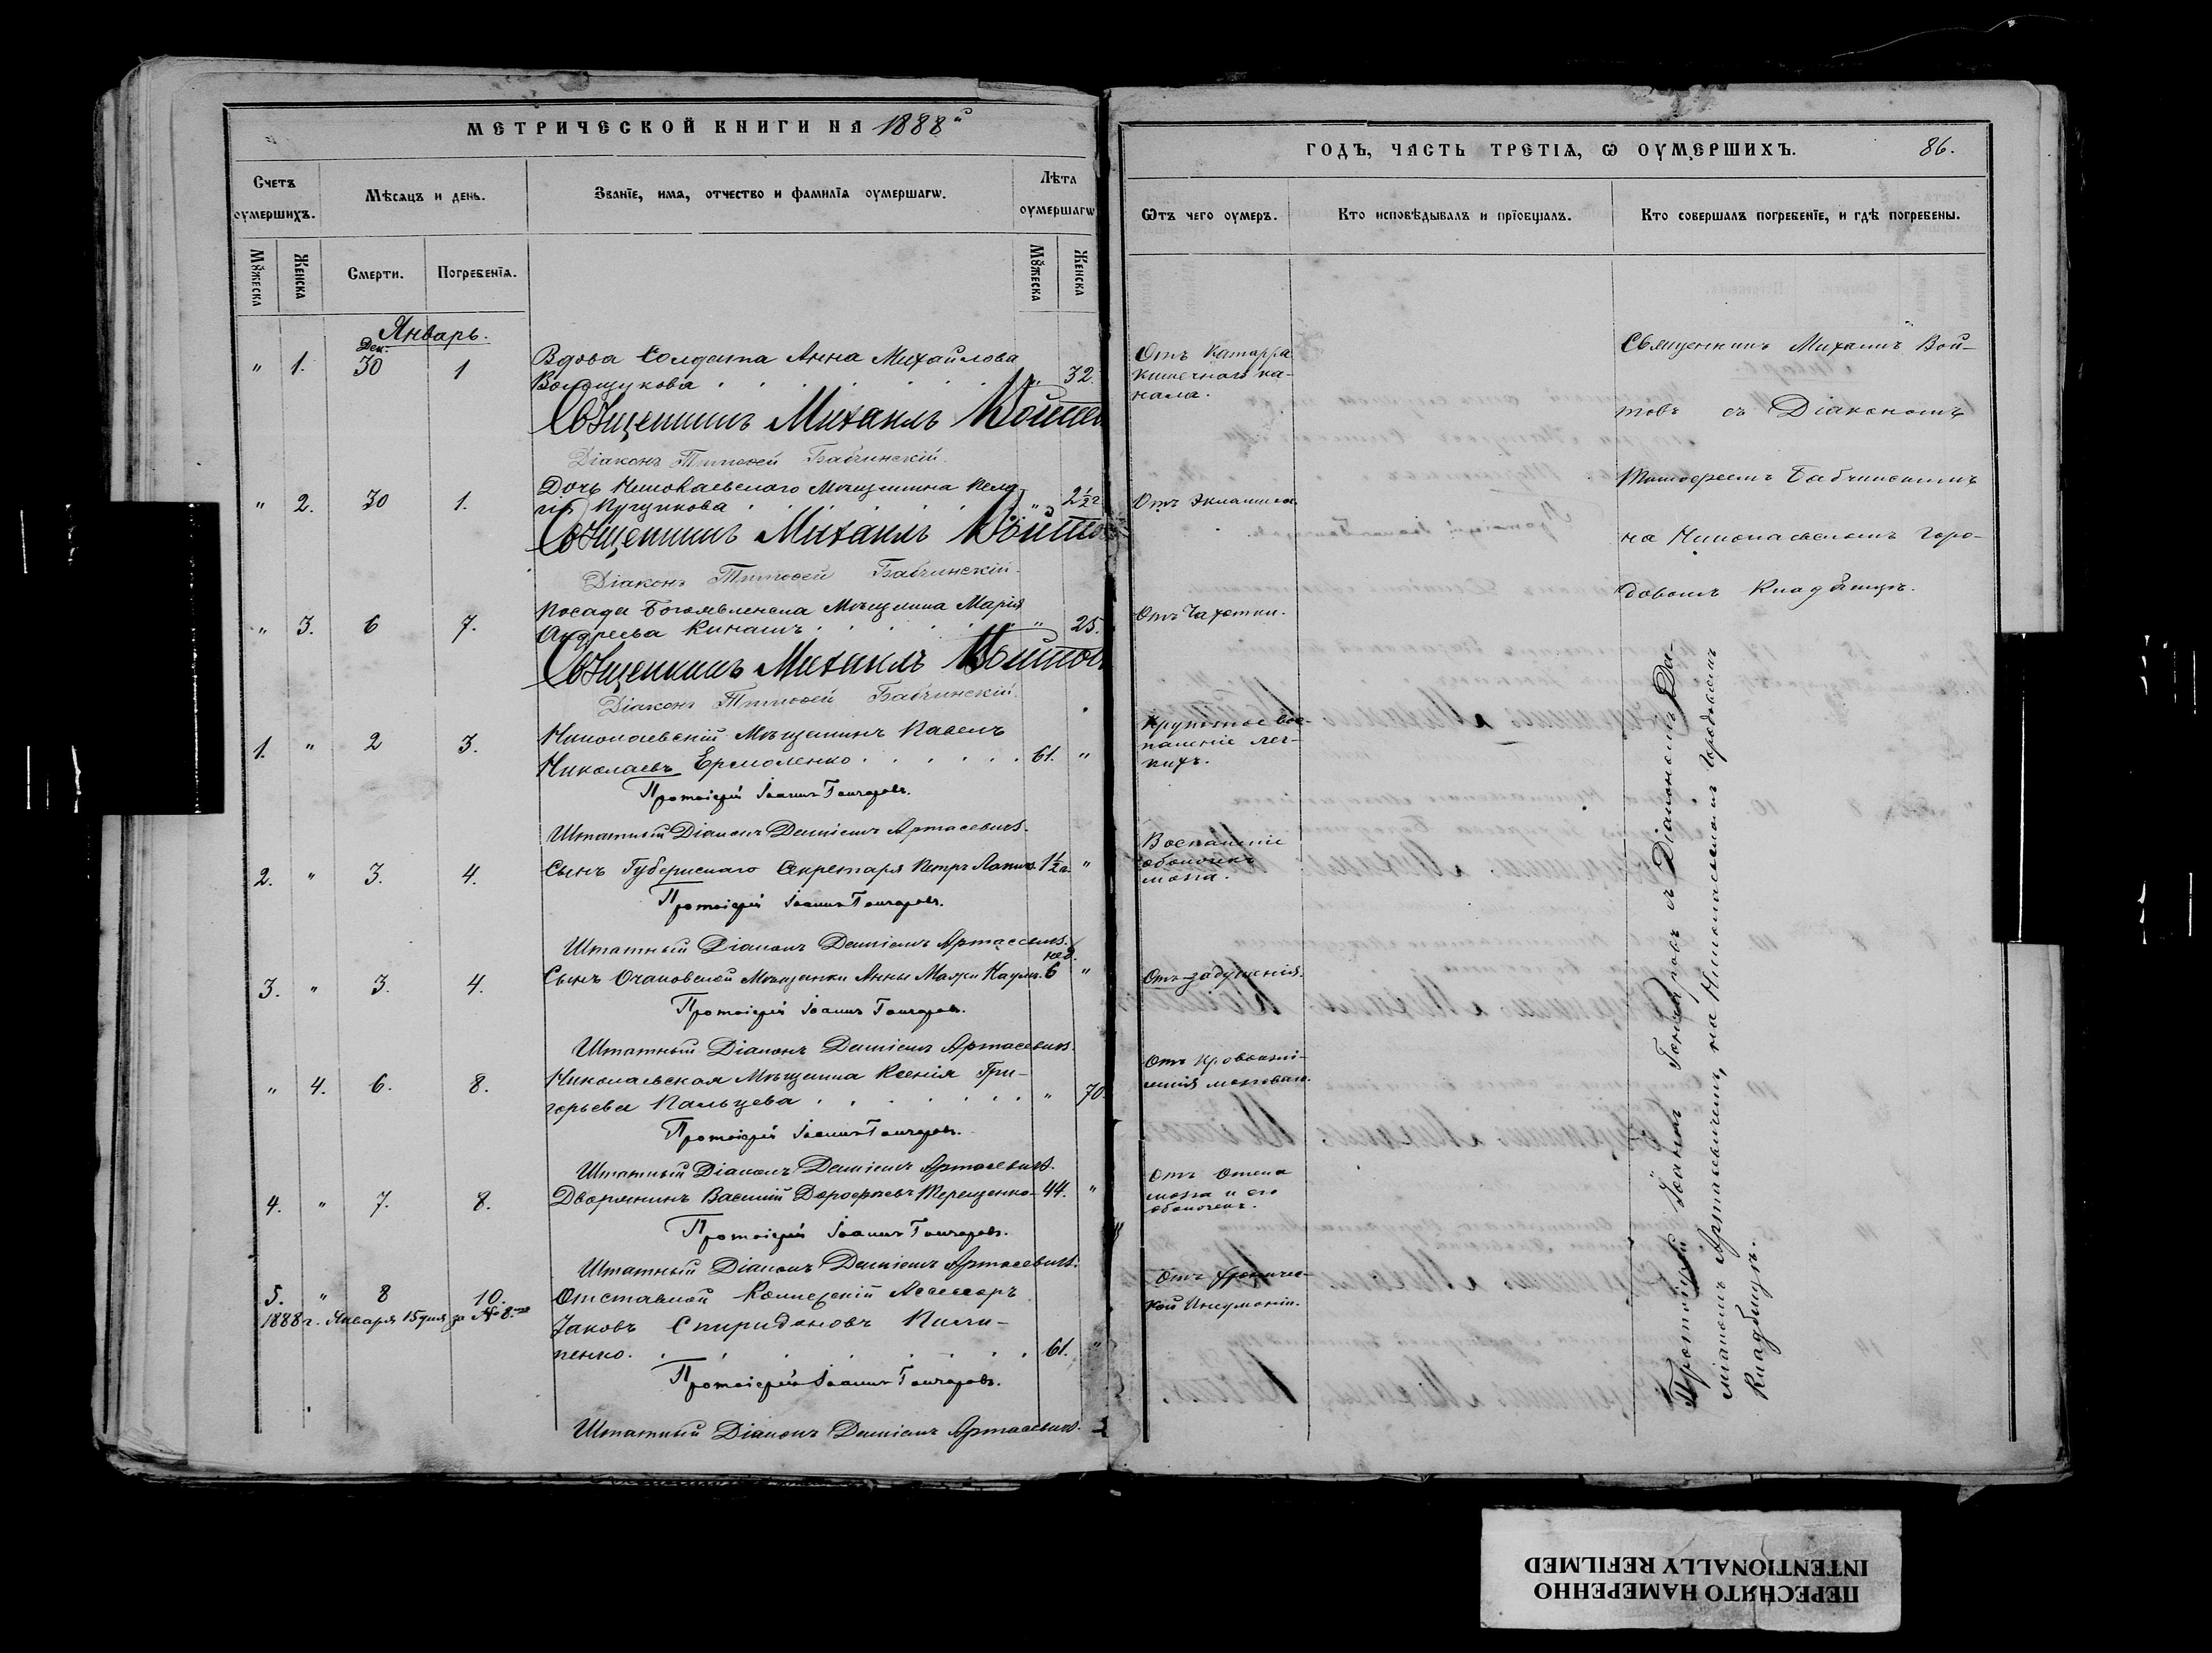 МЕТРИЧЕСКОЙ КНИГИ НА 1888й
Счетъ оумершихъ.
Мѣсяцъ и день.
Званіе, имя, отчество и фамилія оумершагѡ.
Лѣта оумершагѡ
Мꙋжеска
Женска
Смерти.
Погребенія.
Мꙋжеска
Женска
Январь.
" 1. Дек. 30 1 Вдова солдата Анна Михайлова
Волощукова . . . . . . . " 32.
Священникъ Михаилъ Войтов
Діаконъ Тимоѳей Бабчинскій.
" 2. 30 1. Дочь Николаевскаго Мѣщанина Пела-
гія Кущикова . . . . . " 2½ г.
Священникъ Михаилъ Войтов
Діаконъ Тимоѳей Бабчинскій.
" 3. 6 7. Посада Богоявленска Мѣщанка Марія
Андреева Кинашъ . . . . . . " 25.
Священникъ Михаилъ Войтов
Діаконъ Тимоѳей Бабчинскій.
1. " 2 3. Николаевскій Мѣщанинъ Павелъ
Николаевъ Ермоленко . . . . . . 61. "
Протоіерей Іоаннъ Гончаровъ.
Штатный Діаконъ Даміанъ Артасевичъ.
2. " 3. 4. Сынъ Губернскаго Секретаря Петръ 1½ г. "
Протоіерей Іоаннъ Гончаровъ.
Штатный Діаконъ Даміанъ Артасевичъ.
3. " 3. 4. Сынъ Очаковской Мѣщанки Анны Наумъ. 6 нед. "
Протоіерей Іоаннъ Гончаровъ.
Штатный Діаконъ Даміанъ Артасевичъ.
" 4. 6. 8. Николаевская Мѣщанка Ксенія Гри-
горьева Пальцева . . . . . . . " 70.
Протоіерей Іоаннъ Гончаровъ.
Штатный Діаконъ Даміанъ Артасевичъ.
4. " 7. 8. Дворянинъ Василій Дороѳеевъ Терещенко 44. "
Протоіерей Іоаннъ Гончаровъ.
Штатный Діаконъ Даміанъ Артасевичъ.
5. " 8 10. Отставной Коллежскій Ассесоръ
1888 г. Января 15 дня за № 8.
Іаковъ Спиридоновъ Кили-
пенко. . . . . . . . 61. "
Протоіерей Іоаннъ Гончаровъ.
Штатный Діаконъ Даміанъ Артасевичъ.
ГОДЪ, ЧАСТЬ ТРЕТІЯ, Ѡ ОУМЕРШИХЪ. 86.
Ѿтъ чего оумеръ.
Кто исповѣдывалъ и пріобщалъ.
Кто совершалъ погребеніе, и гдѣ погребены.
Отъ катарра
кишечнаго ка-
нала.
Отъ Эклампсіи
Отъ Чахотки.
Крупозное вос-
паленіе лег-
кихъ.
Воспаленіе
оболочекъ
мозга.
Отъ задушенія.
Отъ кровоизлі-
янія
Отъ Отека
мозга и его
оболочекъ.
Отъ хроничес-
кой Пнеумоніи.
Священникъ Михаилъ Вой-
товъ съ Діакономъ
Тимоѳеемъ Бабчинскимъ
на Николаевскомъ Горо-
довомъ Кладбищѣ.
Протоіерей Іоаннъ Гончаровъ съ Діакономъ Да-
міаномъ Артасевичемъ, на Николаевскомъ Городовомъ
Кладбищѣ.
ПЕРЕСНЯТО НАМЕРЕННО
INTENTIONALLY REFILMED